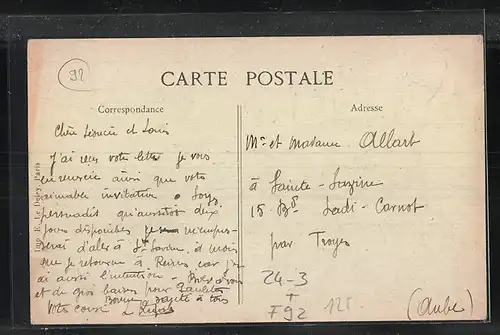 92
CARTE POSTALE
Correspondance
Adresse
Chère Léoncie et Louis
J'ai reçu votre lettre je vous
en remercie ainsi que votre
aimable invitation. Soyez
persuadés qu'aussitôt deux
jours disponibles je m'empres-
serai d'aller à à moins
que je retourne à Reims car j'en
ai aussi l'intention - à vous
et de gros baisers pour
Bonne santé à tous
Votre
Mr et Madame Allart
à Sainte-Savine
15 Bd Sadi-Carnot
par Troyes
(Aube)
24-3
+
F92
125
Imp. E. Le Deley, Paris